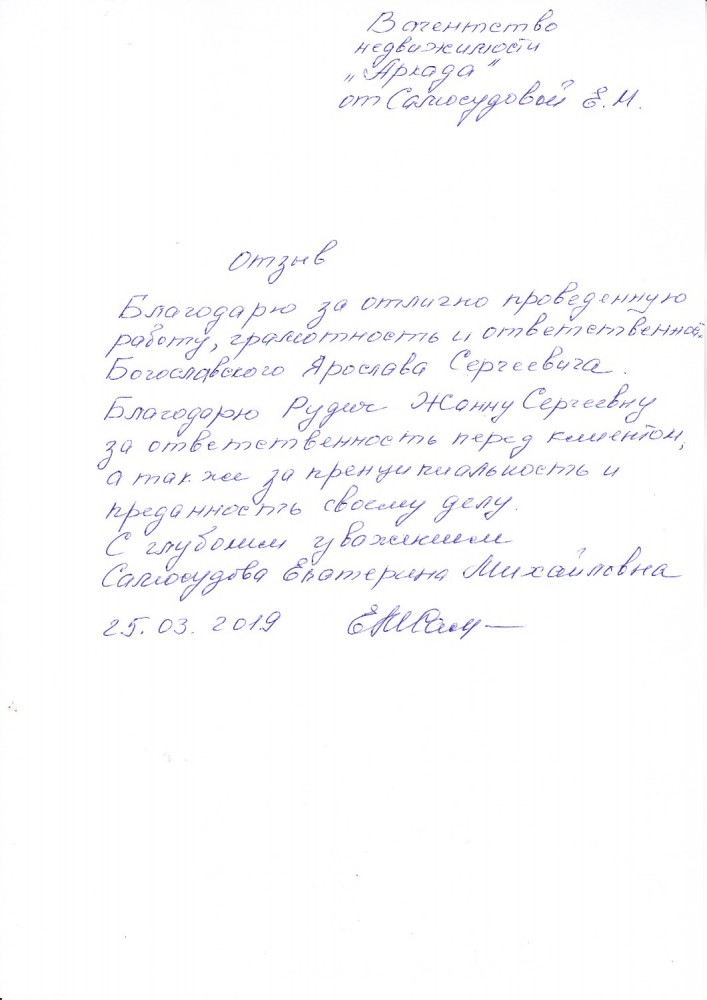 В агентство
недвижимости
„Аркада"
от Самосудовой Е. М.
Отзыв
Благодарю за отлично проведенную
работу, грамотность и ответственность
Богославского Ярослава Сергеевича.
Благодарю Рудич Жанну Сергеевну
за ответственность перед клиентом,
а так же за пренципиальность и
преданность своему делу.
С глубоким уважением
Самосудова Екатерина Михайловна
25.03.2019 ЕМСам